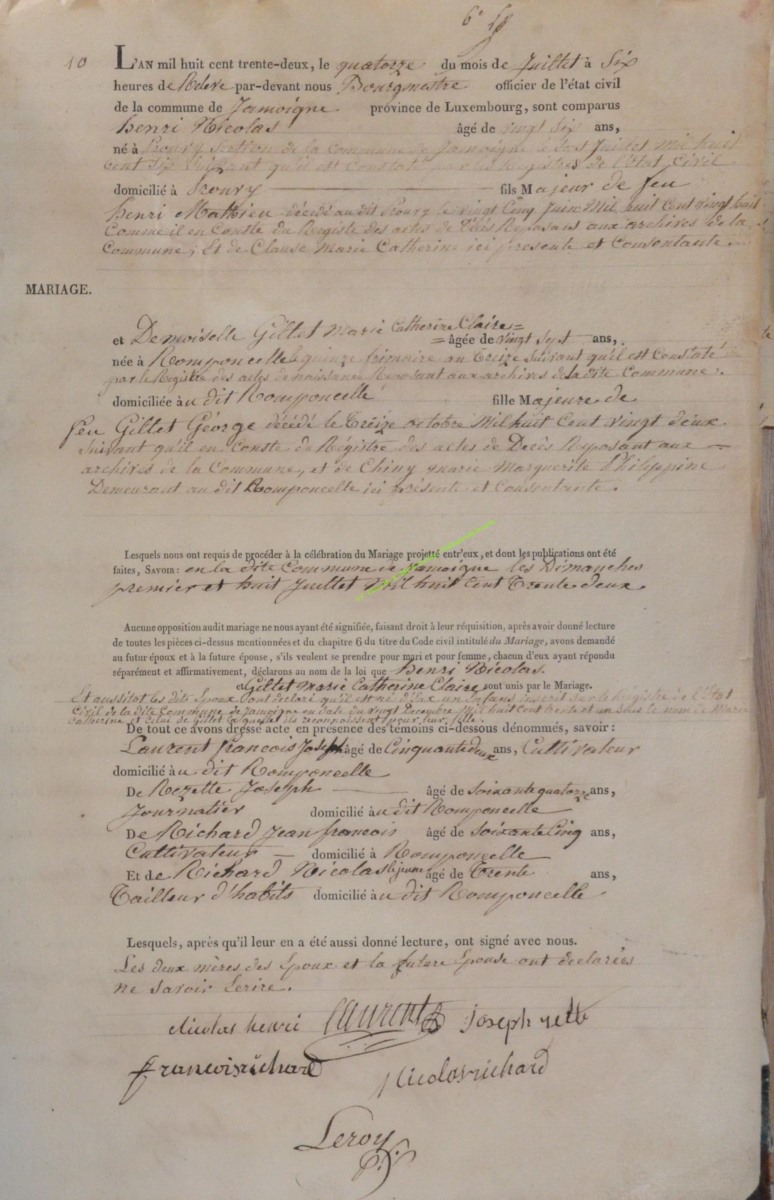 10
L'AN mil huit cent trente-deux, le quatorze du mois de Juillet à Six
heures de Relevé par-devant nous Bourgmestre officier de l'état civil
de la commune de Jamoigne province de Luxembourg, sont comparus
henri Nicolas âgé de vingt Six ans,
né à Prouvy Section de la commune de Jamoigne le Juillet mil huit
cent Six Suivant qu'il est Constaté par les Registres de l'état Civil
domicilié à Prouvy fils Majeur de feu
henri Mathieu décédé au dit Prouvy le vingt Cinq Juin Mil huit Cent vingt huit
Comme il en Conste du Registe des actes de Décès Reposant aux archives de la
Commune; Et de Clause Marie Catherine ici présente et Consentante.
MARIAGE.
et Demoiselle Gillet Marie Catherine Claire =
= âgée de vingt Sept ans,
née à Romponcelle le quinze frimaire an Treize Suivant qu'il est Constaté
par le Registre des actes de naissance Reposant aux archives de la dite Commune.
domiciliée àu dit Romponcelle fille Majeure de
feu Gillet George décédé le Treize octobre Mil huit Cent vingt deux
Suivant qu'il en Conste du Régistre des actes de Decès Reposant aux
archives de la Commune, et de Chiny Marie Marguerite Philippine
Demeurant au dit Romponcelle ici présente et Consentante.
Lesquels nous ont requis de procéder à la célébration du Mariage projetté entr'eux, et dont les publications ont été
faites, Savoir: en la dite Commune de Jamoigne les Dimanches
premier et huit Juillet Mil huit Cent Trente deux
Aucune opposition audit mariage ne nous ayant été signifiée, faisant droit à leur réquisition, après avoir donné lecture
de toutes les pièces ci-dessus mentionnées et du chapitre 6 du titre du Code civil intitulé du Mariage, avons demandé
au futur époux et à la future épouse, s'ils veulent se prendre pour mari et pour femme, chacun d'eux ayant répondu
séparément et affirmativement, déclarons au nom de la loi que henri Nicolas.
et Gillet Marie Catherine Claire sont unis par le Mariage.
Et aussitot les dits Epoux ont declaré qu'il est né d'Eux un Enfans inscrit sur le Registre de l'Etat
Civil de la dite Commune de Jamoigne en date du vingt Decembre Mil huit Cent trente et un Sous le nom de Marie
Catherine et Celui de Gillet laquelle ils reconnoissent pour leur fille.
De tout ce avons dressé acte en présence des témoins ci-dessous dénommés, savoir:
Laurent francois Joseph âgé de Cinquante deux ans, Cultivateur
domicilié àu dit Romponcelle
De Rezette Joseph âgé de Soixante quatorze ans,
Journalier domicilié àu dit Romponcelle
De Richard Jean francois âgé de Soixante Cinq ans,
Cultivateur domicilié à Romponcelle
Et de Richard Nicolas le jeune âgé de Trente ans,
Tailleur d'habits domicilié àu dit Romponcelle
Lesquels, après qu'il leur en a été aussi donné lecture, ont signé avec nous.
Les deux mères des époux et la future Epouse ont declarées
ne savoir Ecrire.
Nicolas henri Laurent Joseph
francois richard
Nicolas richard
Leroy